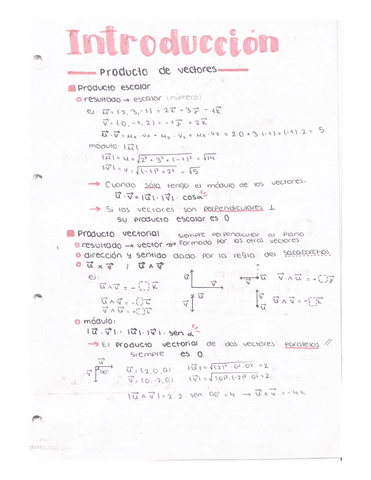 Introducción
producto de vectores
Producto escalar
resultado → escalar (número)
ej: u = (2, 3, -1) = 2i + 3j - 1k
v = (0, -1, 2) = -1j + 2k
módulo: |u|
|u| = u = √2² + 3² + (-1)² = √14
|v| = √(-1)² + 2² = √5
→ Cuando sólo tengo el módulo de los vectores:
u · v = |u| · |v| · cos α
→ Si los vectores son perpendiculares ⊥
su producto escalar es 0
Producto vectorial siempre perpendicular al plano
resultado → vector → formado por los otros vectores
dirección y sentido dado por la regla del sacacorchos
u × v / u ∧ v
ej:
módulo:
|u · v| = |u| · |v| · sen α
→ El producto vectorial de dos vectores paralelos //
siempre es 0
u = (2, 0, 0) |u| = √(2)² · 0² · 0² = 2
v = (0, -2, 0) |v| = √(0)² · (-2)² · 0² = 2
|u ∧ v| = 2 · 2 · sen 90° = 4 → u ∧ v = -4k